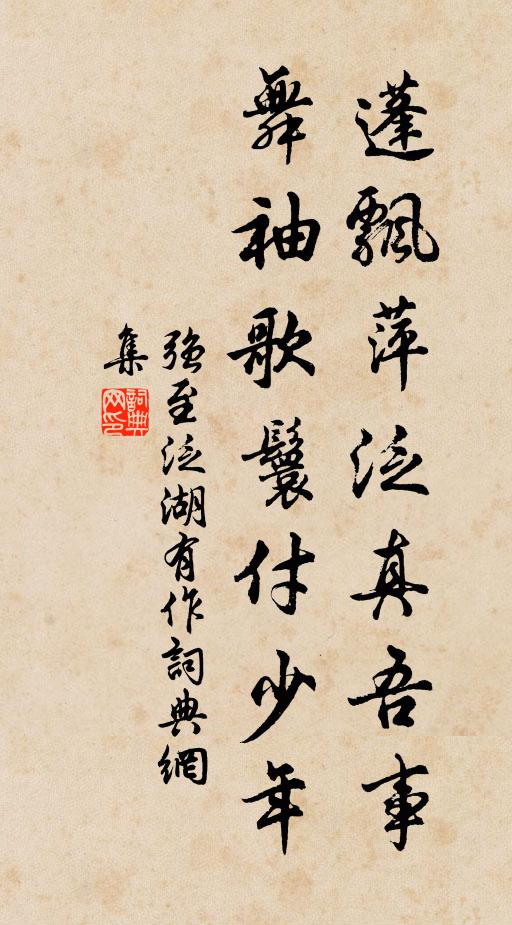 蓬飄萍泛真吾事
舞袖歌鬟付少年
強至泛湖有作詞典網
集
詞典
网印